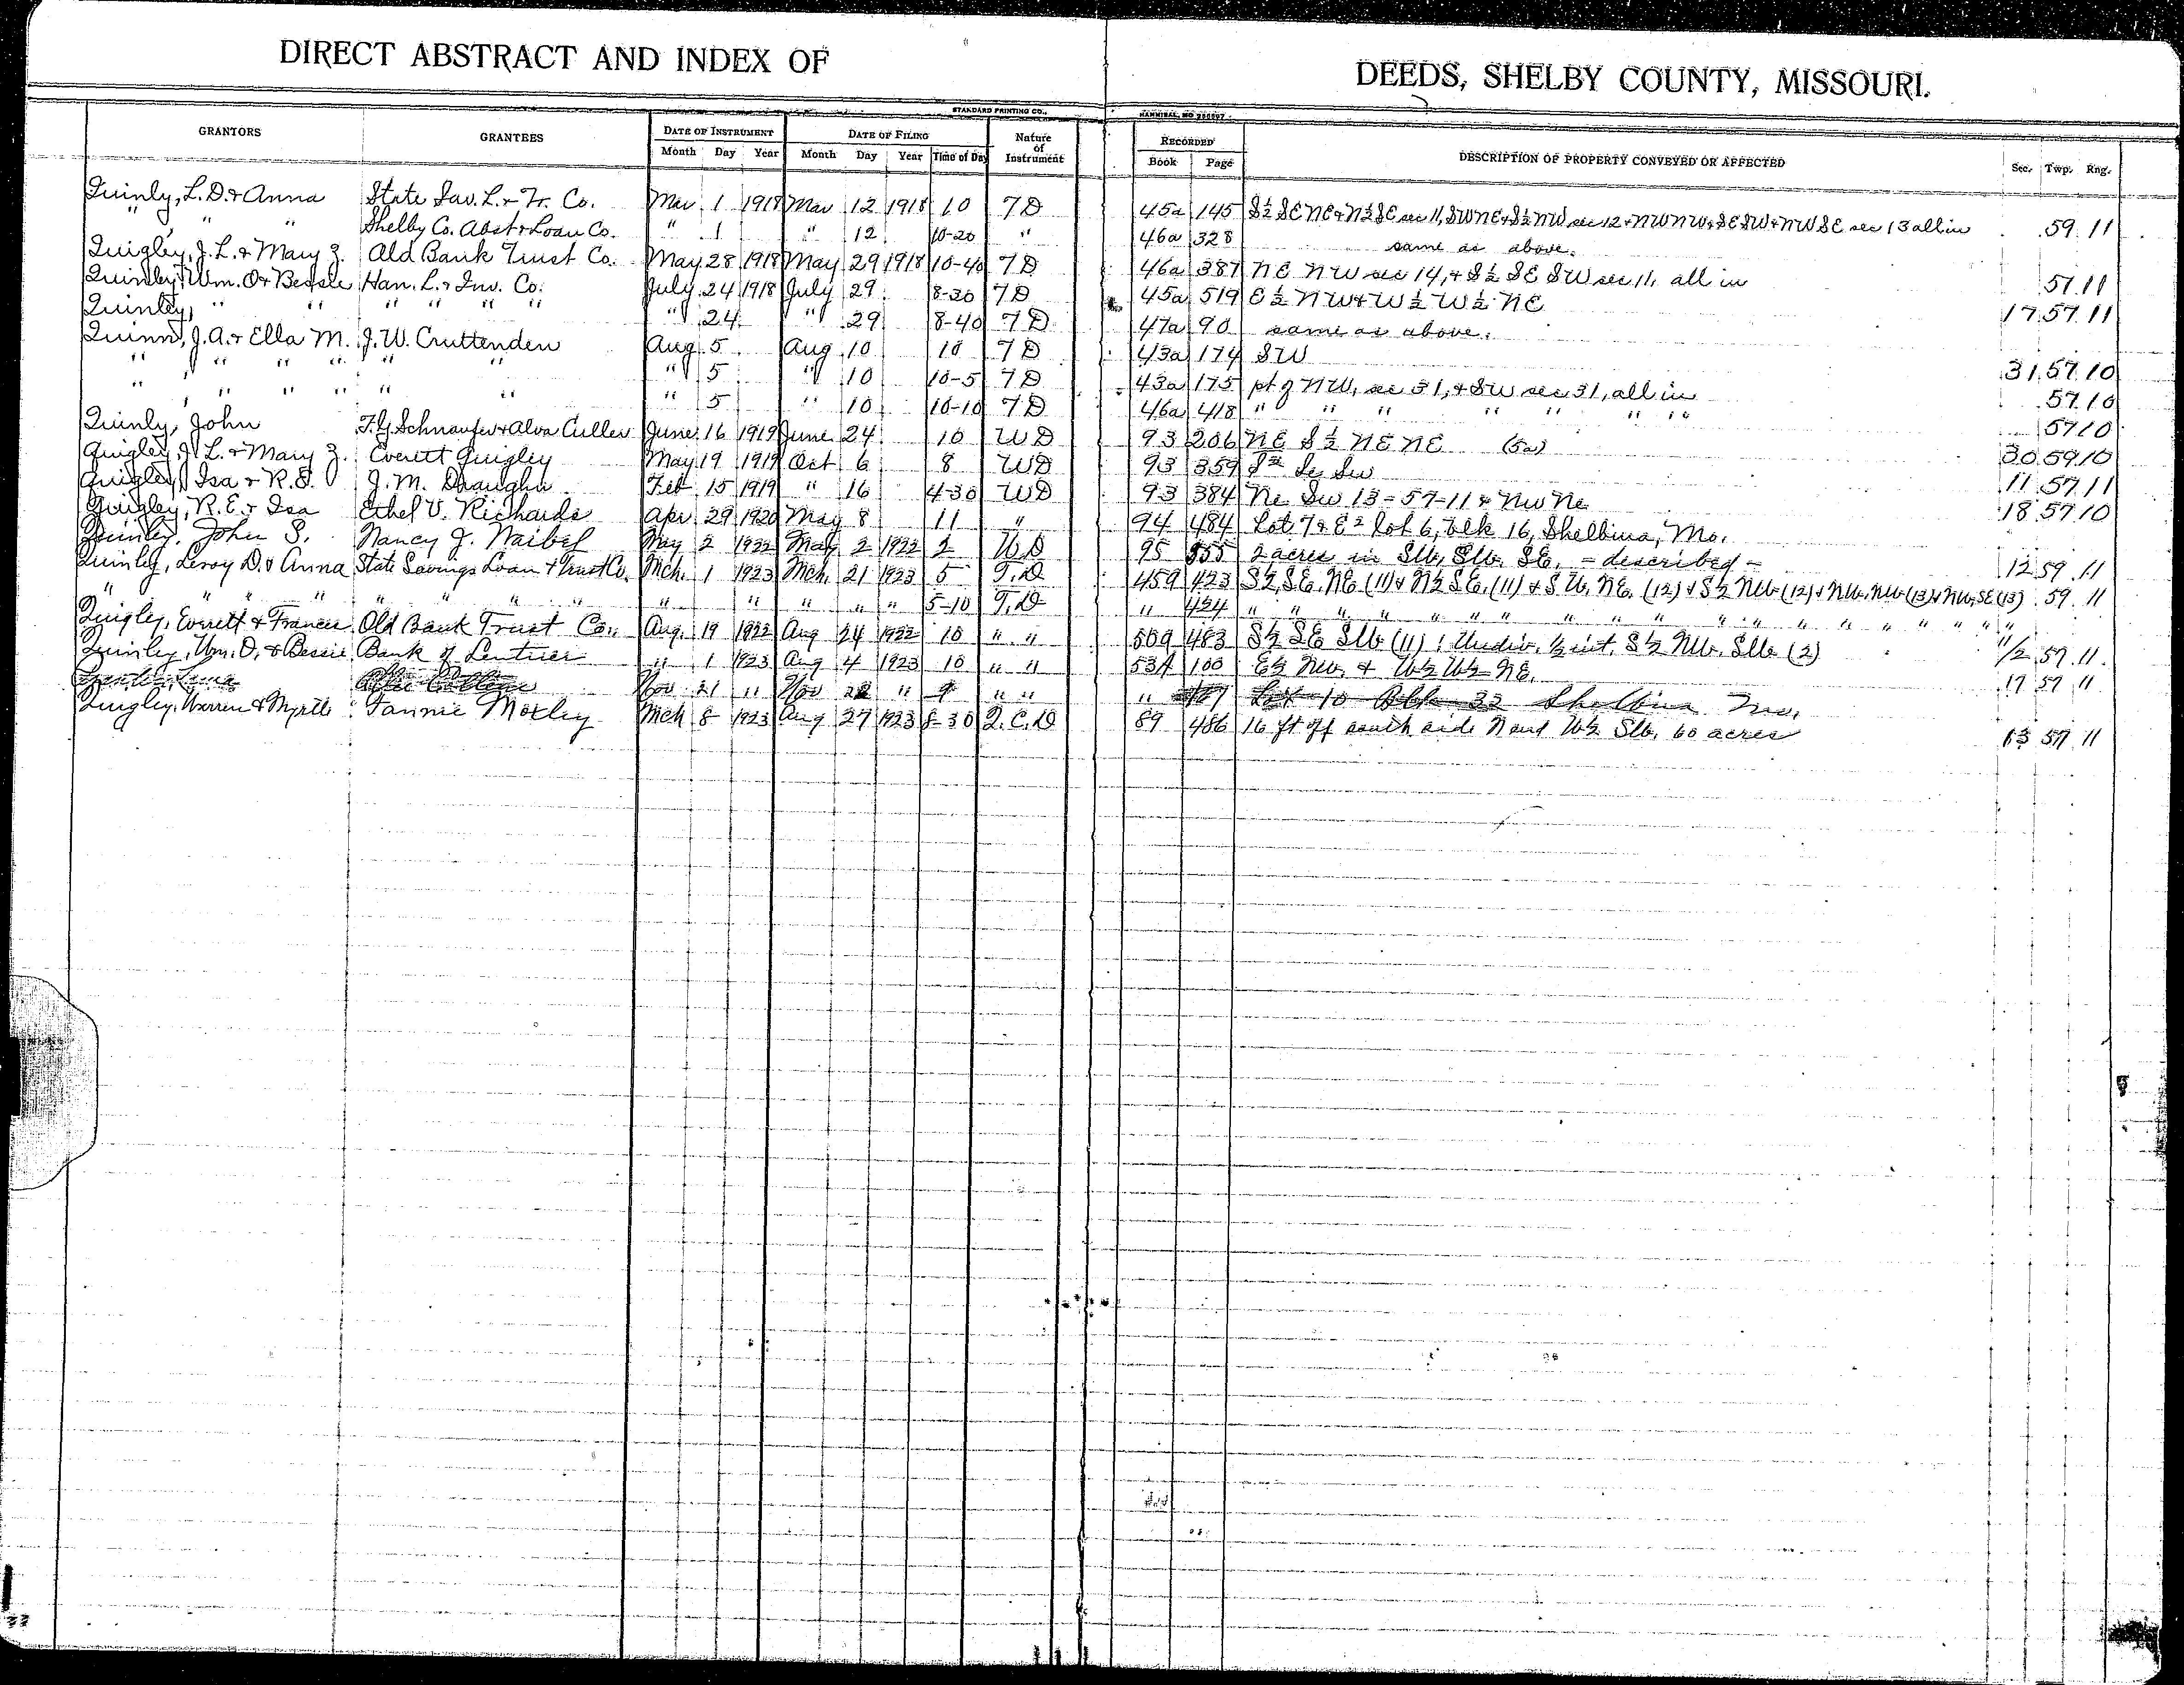 DIRECT ABSTRACT AND INDEX OF DEEDS, SHELBY COUNTY, MISSOURI.
STANDARD PRINTING CO., HANNIBAL, MO
GRANTORS GRANTEES DATE OF INSTRUMENT DATE OF FILING Nature of Instrument RECORDED DESCRIPTION OF PROPERTY CONVEYED OR AFFECTED Sec. Twp. Rng.
Month Day Year Month Day Year Time of Day Book Page
Quinly, L. D. & Anna State Sav. L. & Tr. Co. Mar 1 1918 Mar 12 1918 10 TD 45a 145 S½ SE NE & N½ SE sec 11, SW NE & S½ NW sec 12 & NW NW & SE SW & NW SE sec 13 all in 59 11
" " " Shelby Co. Abst & Loan Co. " 1 " 12 10-20 " 46a 328 same as above.
Quigley, J. L. & Mary Z. Old Bank Trust Co. May 28 1918 May 29 1918 10-40 TD 46a 387 NE NW sec 14, & S½ SE SW sec 11, all in 57 11
Quinley, Wm. O & Bessie Han. L. & Inv. Co. July 24 1918 July 29 8-30 TD 45a 519 E½ NW & W½ W½ NE 17 57 11
Quinley, " " " " " " " 24 " 29 8-40 TD 47a 90 same as above.
Quinn, J. A. & Ella M. J. W. Cruttenden Aug 5 Aug 10 10 TD 43a 174 SW 31 57 10
" " " " " " " 5 " 10 10-5 TD 43a 175 pt of NW, sec 31, & SW sec 31, all in 57 10
" " " " " " " 5 " 10 10-10 TD 46a 418 " " " " " " " 57 10
Quinly, John & Alva Culler June 16 1919 June 24 10 WD 93 206 NE S½ NE NE (5a) 30 59 10
Quigley, J. L. & Mary Z. Everett Quigley May 19 1919 Oct 6 8 WD 93 359 S² Se Sw 11 57 11
Quigley, Isa & R. E. J. M. Draughn Feb 15 1919 " 16 4-30 WD 93 384 Ne Sw 13-57-11 & Nw Ne 18 57 10
Quigley, R. E. & Isa Ethel V. Richards Apr 29 1920 May 8 11 " 94 484 Lot 7 & E² lot 6, blk 16, Shelbina, Mo.
Quinley, John S. Nancy J. Naibel May 2 1922 May 2 1922 2 W.D 95 555 2 acres in SW, SW, SE, - described - 12 59 11
Quinley, Leroy D. & Anna State Savings Loan & Trust Co. Mch. 1 1923 Mch. 21 1923 5 T.D 459 423 S½, SE, NE (11) & N½ SE, (11) & SW, NE. (12) & S½ NW (12) & NW, NW (13) & NW, SE (13) 59 11
" " " " " " " " " " " " 5-10 T.D " 424 " " " " " " " " " " " "
Quigley, Everett & Frances Old Bank Trust Co. Aug. 19 1922 Aug 24 1922 10 " " 509 483 S½ SE SW (11) ; Undiv. ½ int. S½ NW, SW (2) 11/2 57 11
Quinley, Wm. O. & Bessie Bank of Lentner " 1 1923 Aug 4 1923 10 " " 534 100 E½ NW, & W½ W½ NE. 17 57 11
Nov 21 " Nov 22 " 9 " " " Lot 10 Blk 32 Shelbina Mo.
Quigley, Warren & Myrtle Fannie Moxley Mch 8 1923 Aug 27 1923 8-30 Q.C.D 89 486 16 ft off south side N end W½ SW, 60 acres 13 57 11